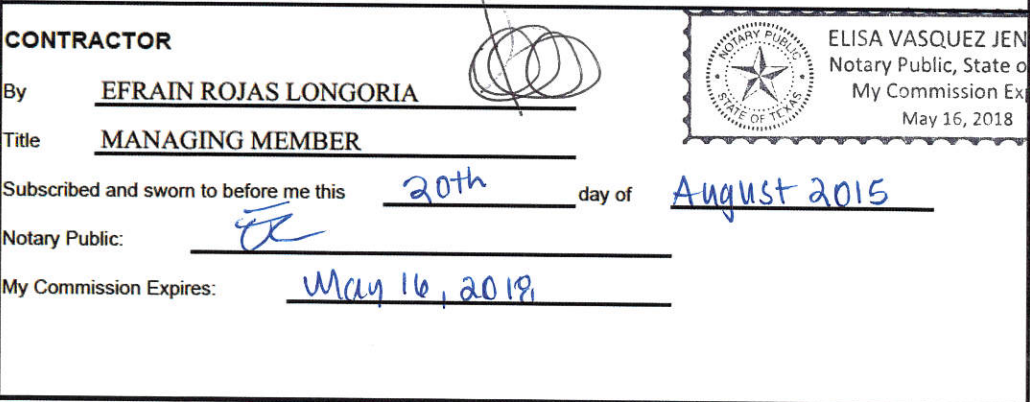 CONTRACTOR
By EFRAIN ROJAS LONGORIA
Title MANAGING MEMBER
Subscribed and sworn to before me this 20th day of August 2015
Notary Public:
My Commission Expires: May 16, 2018
NOTARY PUBLIC
STATE OF TEXAS
ELISA VASQUEZ JEN
Notary Public, State o
My Commission Exp
May 16, 2018